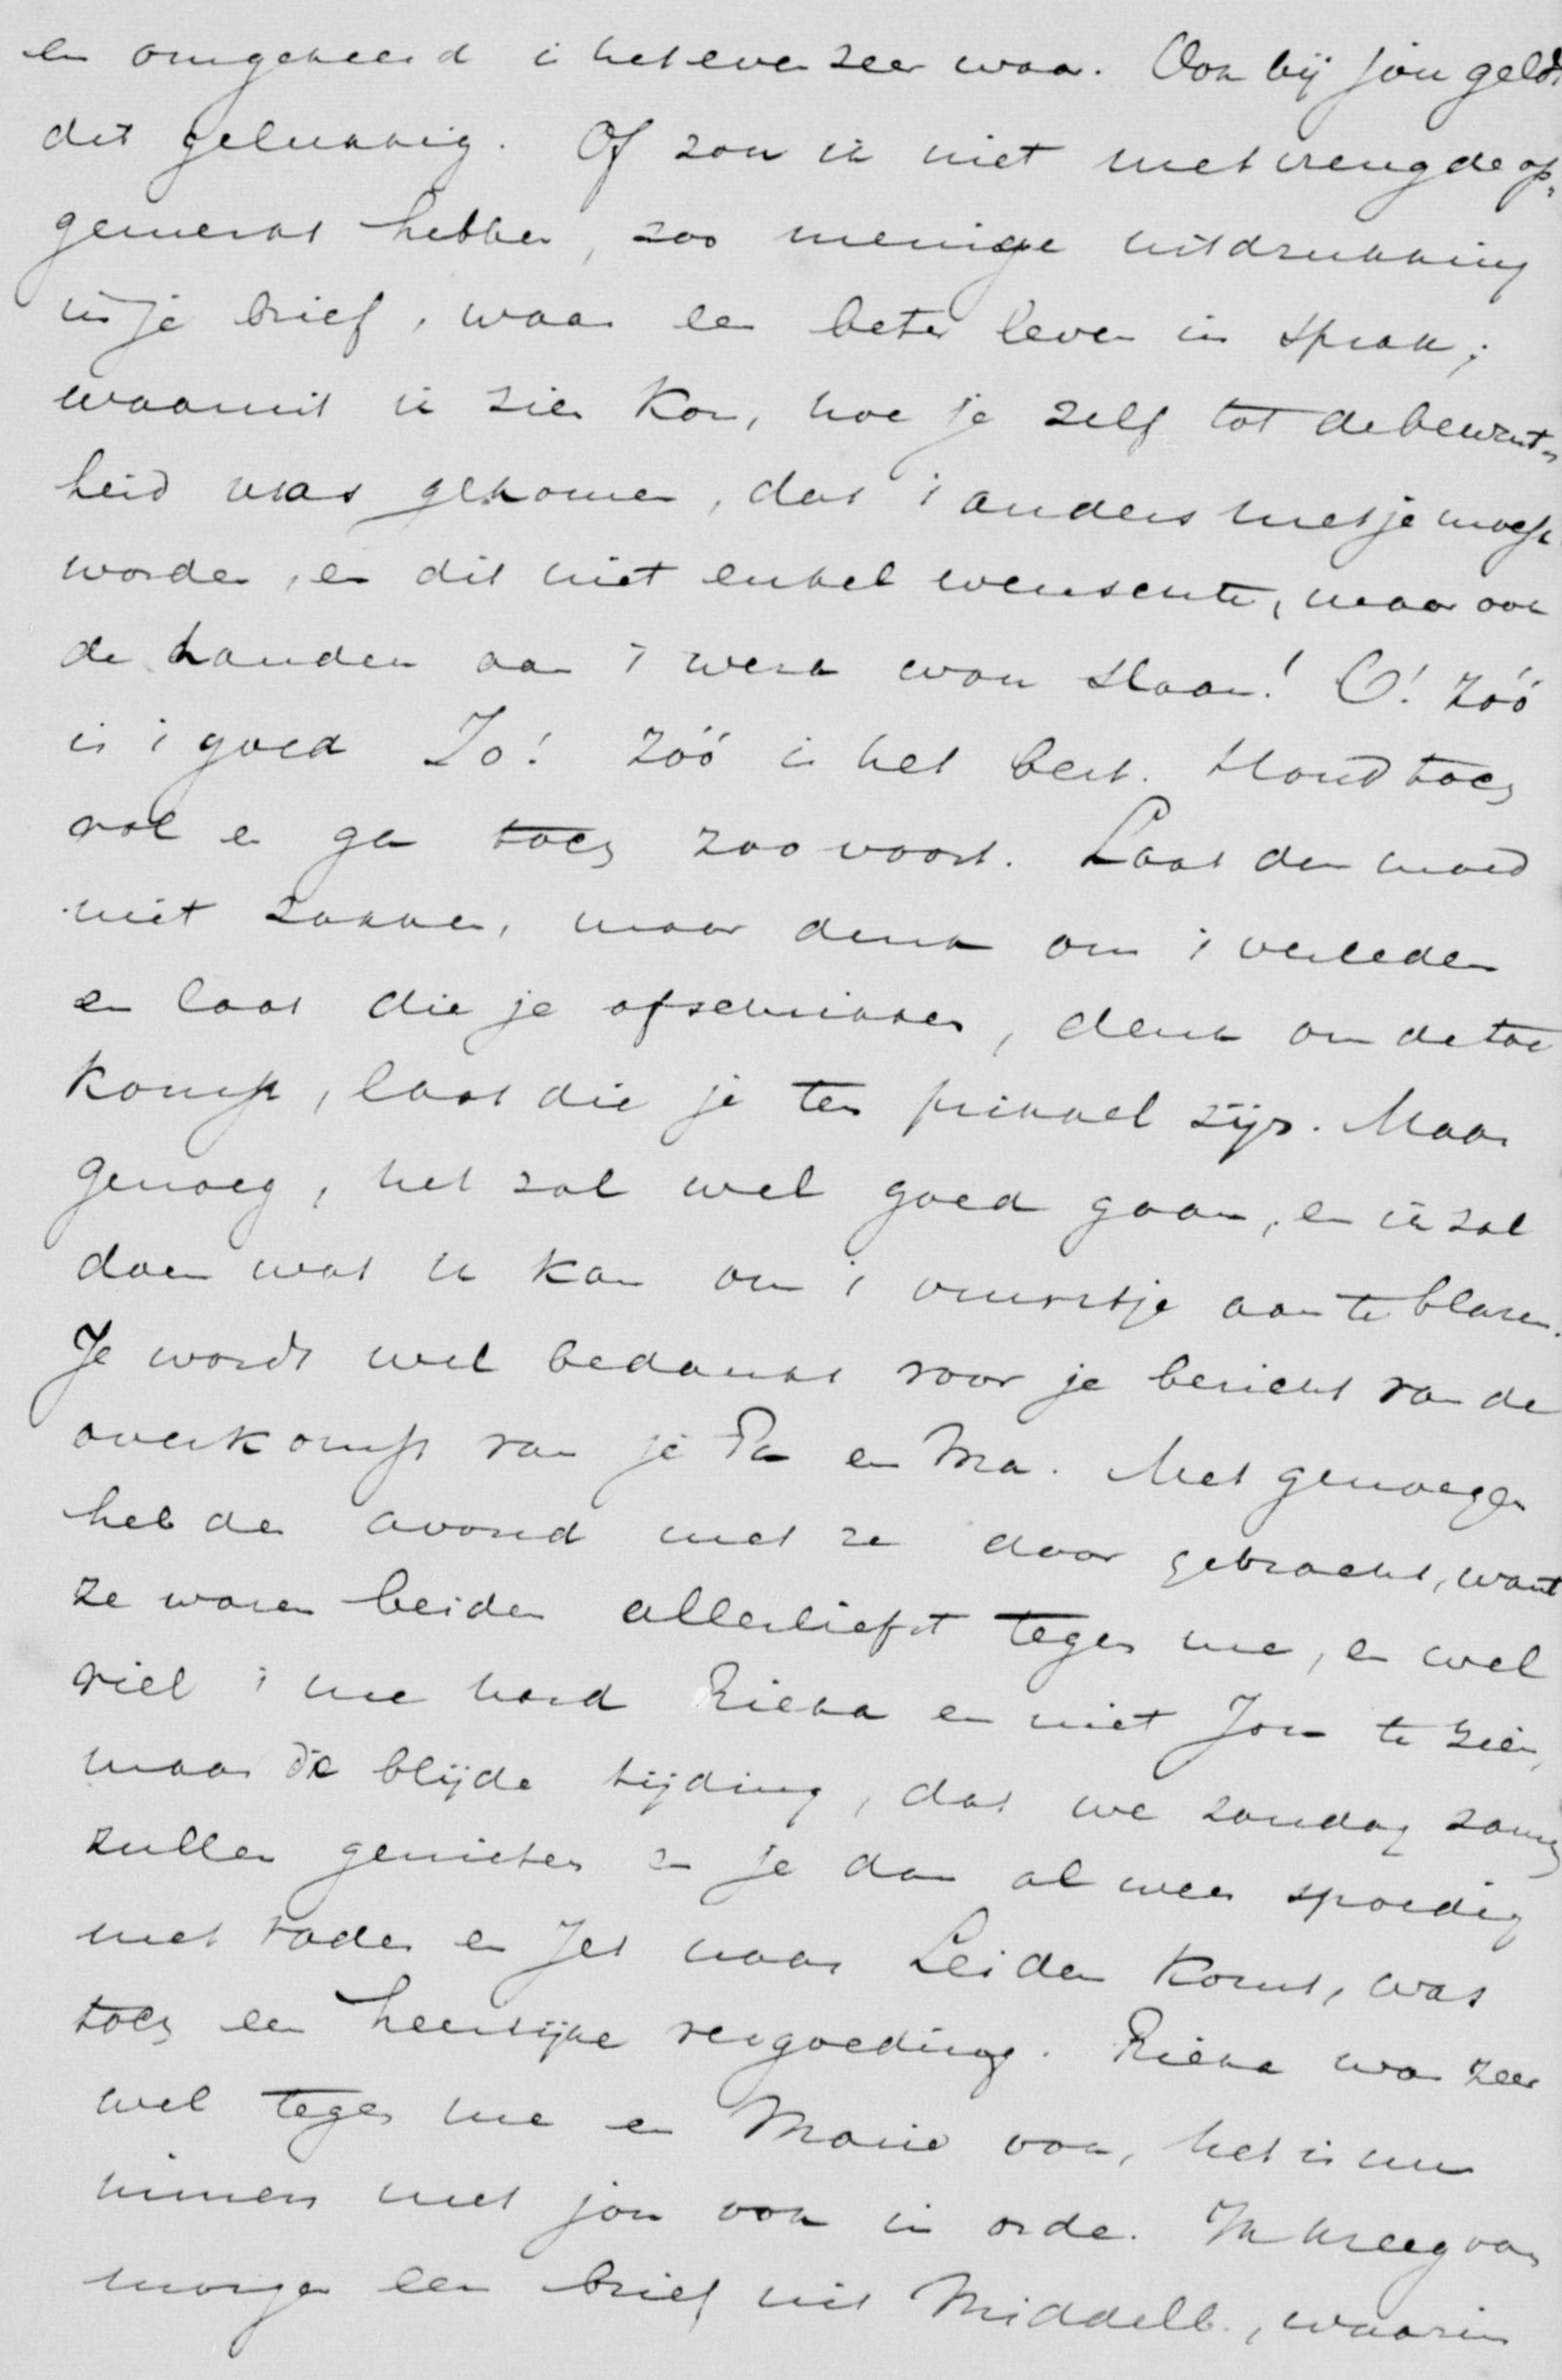 en omgekeerd is het even zeer waar. Ook bij jou geldt
dit gelukkig. Of zou ik niet met vreugde op-
gemerkt hebben, zoo menige uitdrukking
in je brief, waar een beter leven in sprak;
waaruit ik zien kon, hoe je zelf tot de bewust-
heid was gekomen, dat 't anders met je moest
worden, en dit niet enkel wenschte, maar ook
de handen aan 't werk wou slaan! O! zóó
is 't goed Jo! zóó is het best. Houd toch
vol en ga toch zoo voort. Laat den moed
niet zakken, maar denk om 't verleden
en laat die je afschrikken, denk om de toe
komst, laat die je ten prikkel zijn. Maar
genoeg, het zal wel goed gaan, en ik zal
doen wat ik kan om 't vuurtje aan te blazen.
Je wordt wel bedankt voor je bericht van de
overkomst van je Pa en Ma. Met genoegen
heb den avond met ze door gebracht, want
ze waren beiden allerliefst tegen me, en wel
viel 't me hard Rieka en niet Jou te zien,
maar de blijde tijding, dat we zondag samen
zullen genieten en je dan al weer spoedig
met vader en Jet naar Leiden komt, was
toch een heerlijke vergoeding. Rieka was zeer
wel tegen me en Marie ook, het is nu
immers met jou ook in orde. Ik kreeg van
morgen een brief uit Middelb., waarin